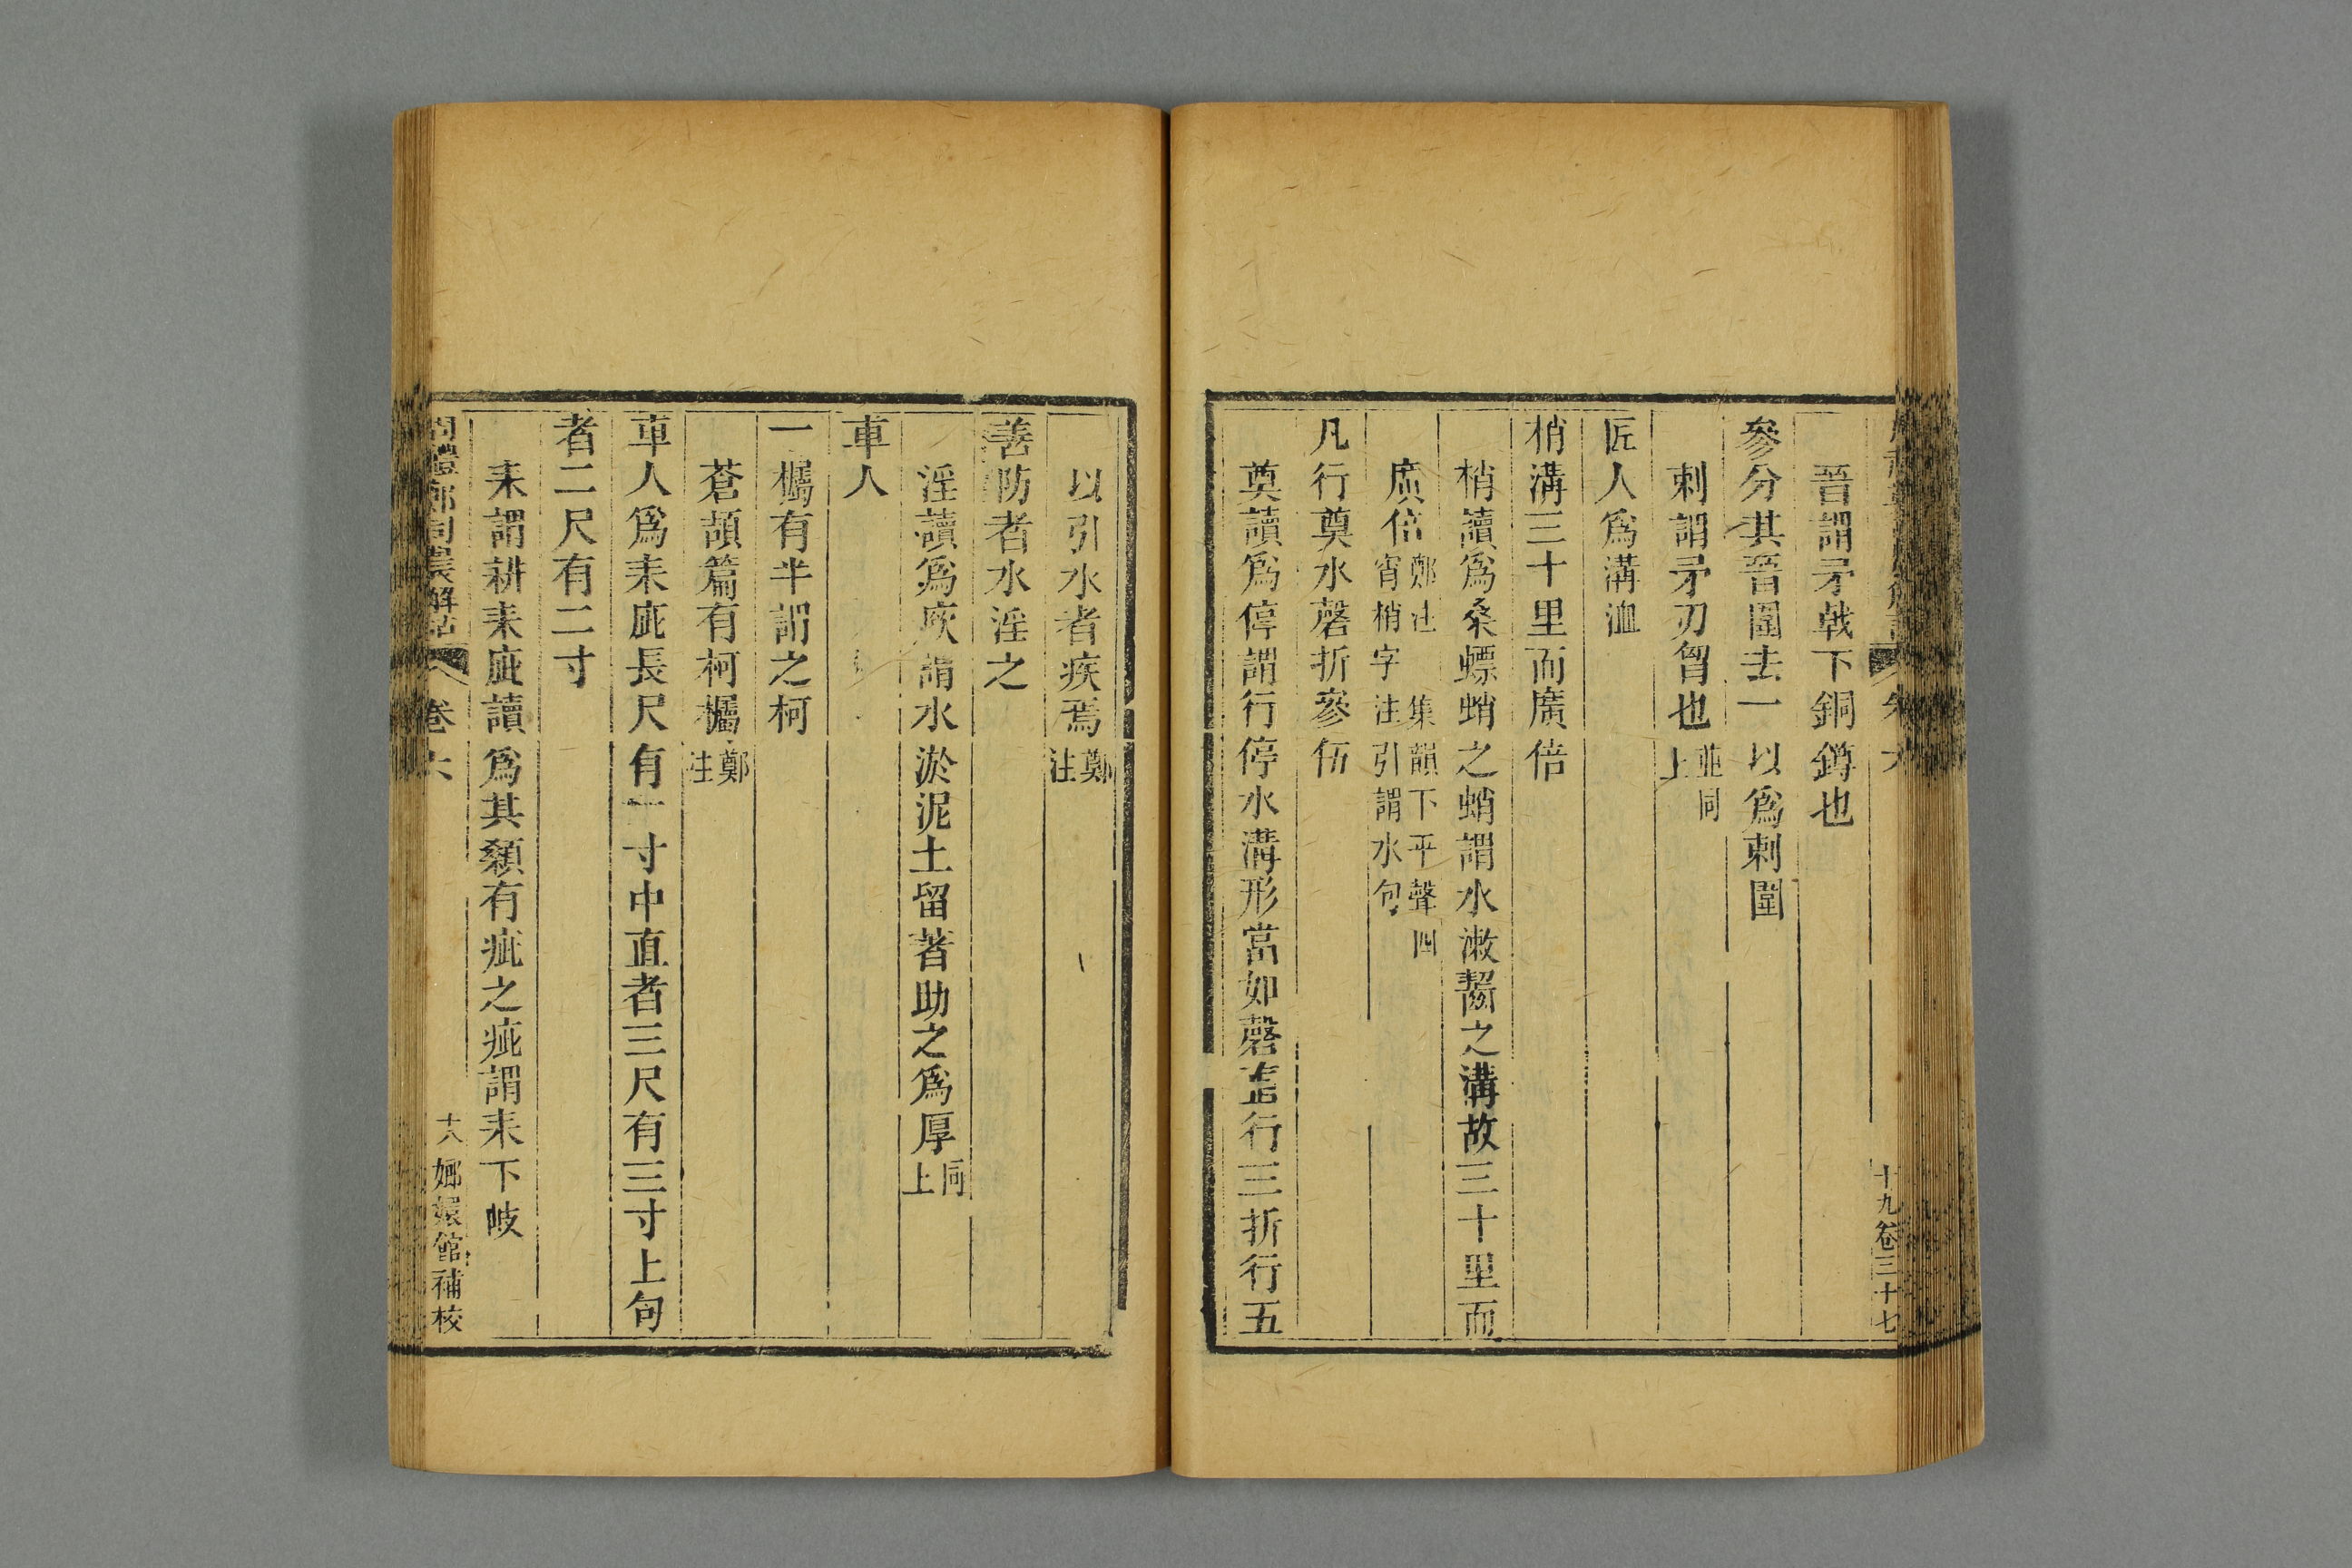 晉謂矛戟下銅鐏也
參分其晉圍去一以爲刺圍
刺謂矛刃胷也並同上
匠人爲溝洫
梢溝三十里而廣倍
梢讀爲桑螵蛸之蛸謂水漱齧之溝故三十里而
廣倍鄭注 集韻下平聲四
宵梢字注引謂水包
凡行奠水磬折參伍
奠讀爲停謂行停水溝形當如磬直行三折行五
十九卷三十七
以引水者疾焉鄭注
善防者水淫之
淫讀爲廞謂水淤泥土留著助之爲厚同上
車人
一欘有半謂之柯
蒼頡篇有柯欘鄭注
車人爲耒庛長尺有一寸中直者三尺有三寸上句
者二尺有二寸
耒謂耕耒庛讀爲其顙有疵之疵謂耒下岐
周禮鄭司農解詁 卷六 十八 嫏嬛館補校